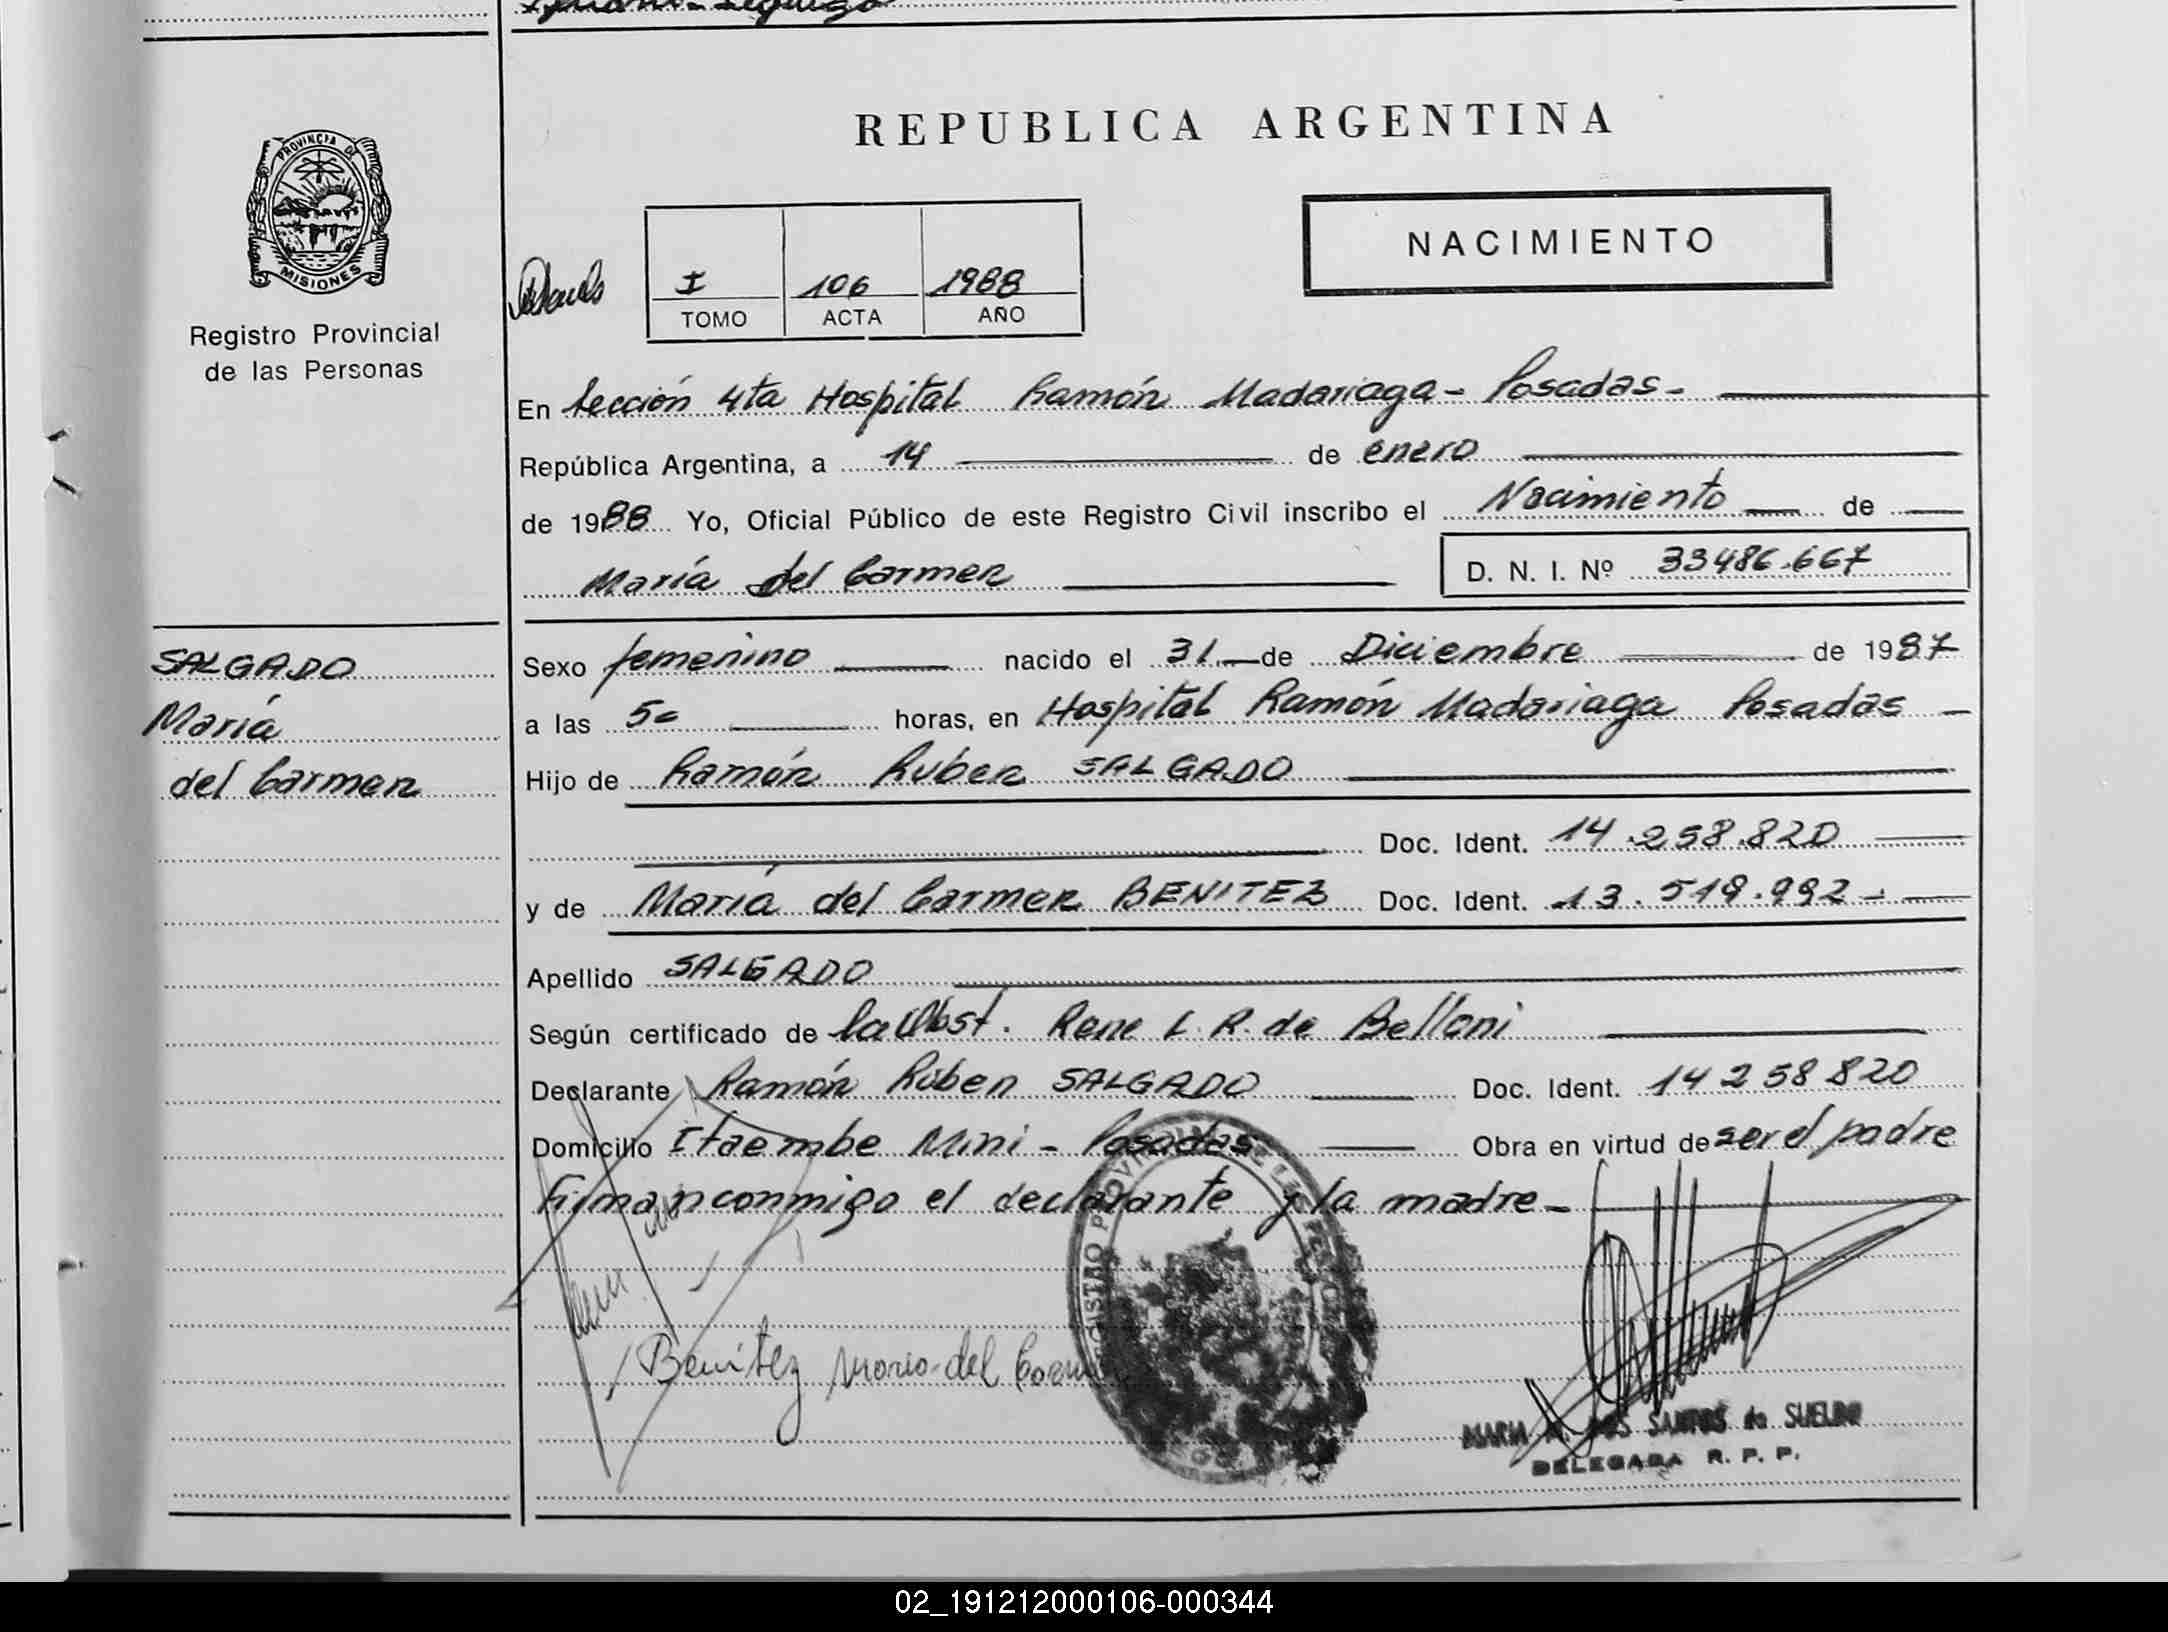 REPUBLICA ARGENTINA
PROVINCIA DE
MISIONES
Registro Provincial
de las Personas
NACIMIENTO
I 106 1988
TOMO ACTA AÑO
En Sección 4ta Hospital Ramón Madariaga - Posadas -
República Argentina, a 14 de enero
de 1988 Yo, Oficial Público de este Registro Civil inscribo el Nacimiento de
María del Carmen D. N. I. Nº 33486.667
SALGADO
María
del Carmen
Sexo femenino nacido el 31 de Diciembre de 1987
a las 5 horas, en Hospital Ramón Madariaga Posadas
Hijo de Ramón Ruben SALGADO
Doc. Ident. 14.258.820
y de María del Carmen BENITEZ Doc. Ident. 13.519.992
Apellido SALGADO
Según certificado de la Obst. Rene L. R. de Belloni
Declarante Ramón Rúben SALGADO Doc. Ident. 14 258 820
Domicilio Itaembe Mini - Posadas Obra en virtud de ser el padre
Firman conmigo el declarante y la madre -
Benitez Maria del Carmen
MARIA DOS SANTOS de SUELDO
DELEGADA R. P. P.
02_191212000106-000344